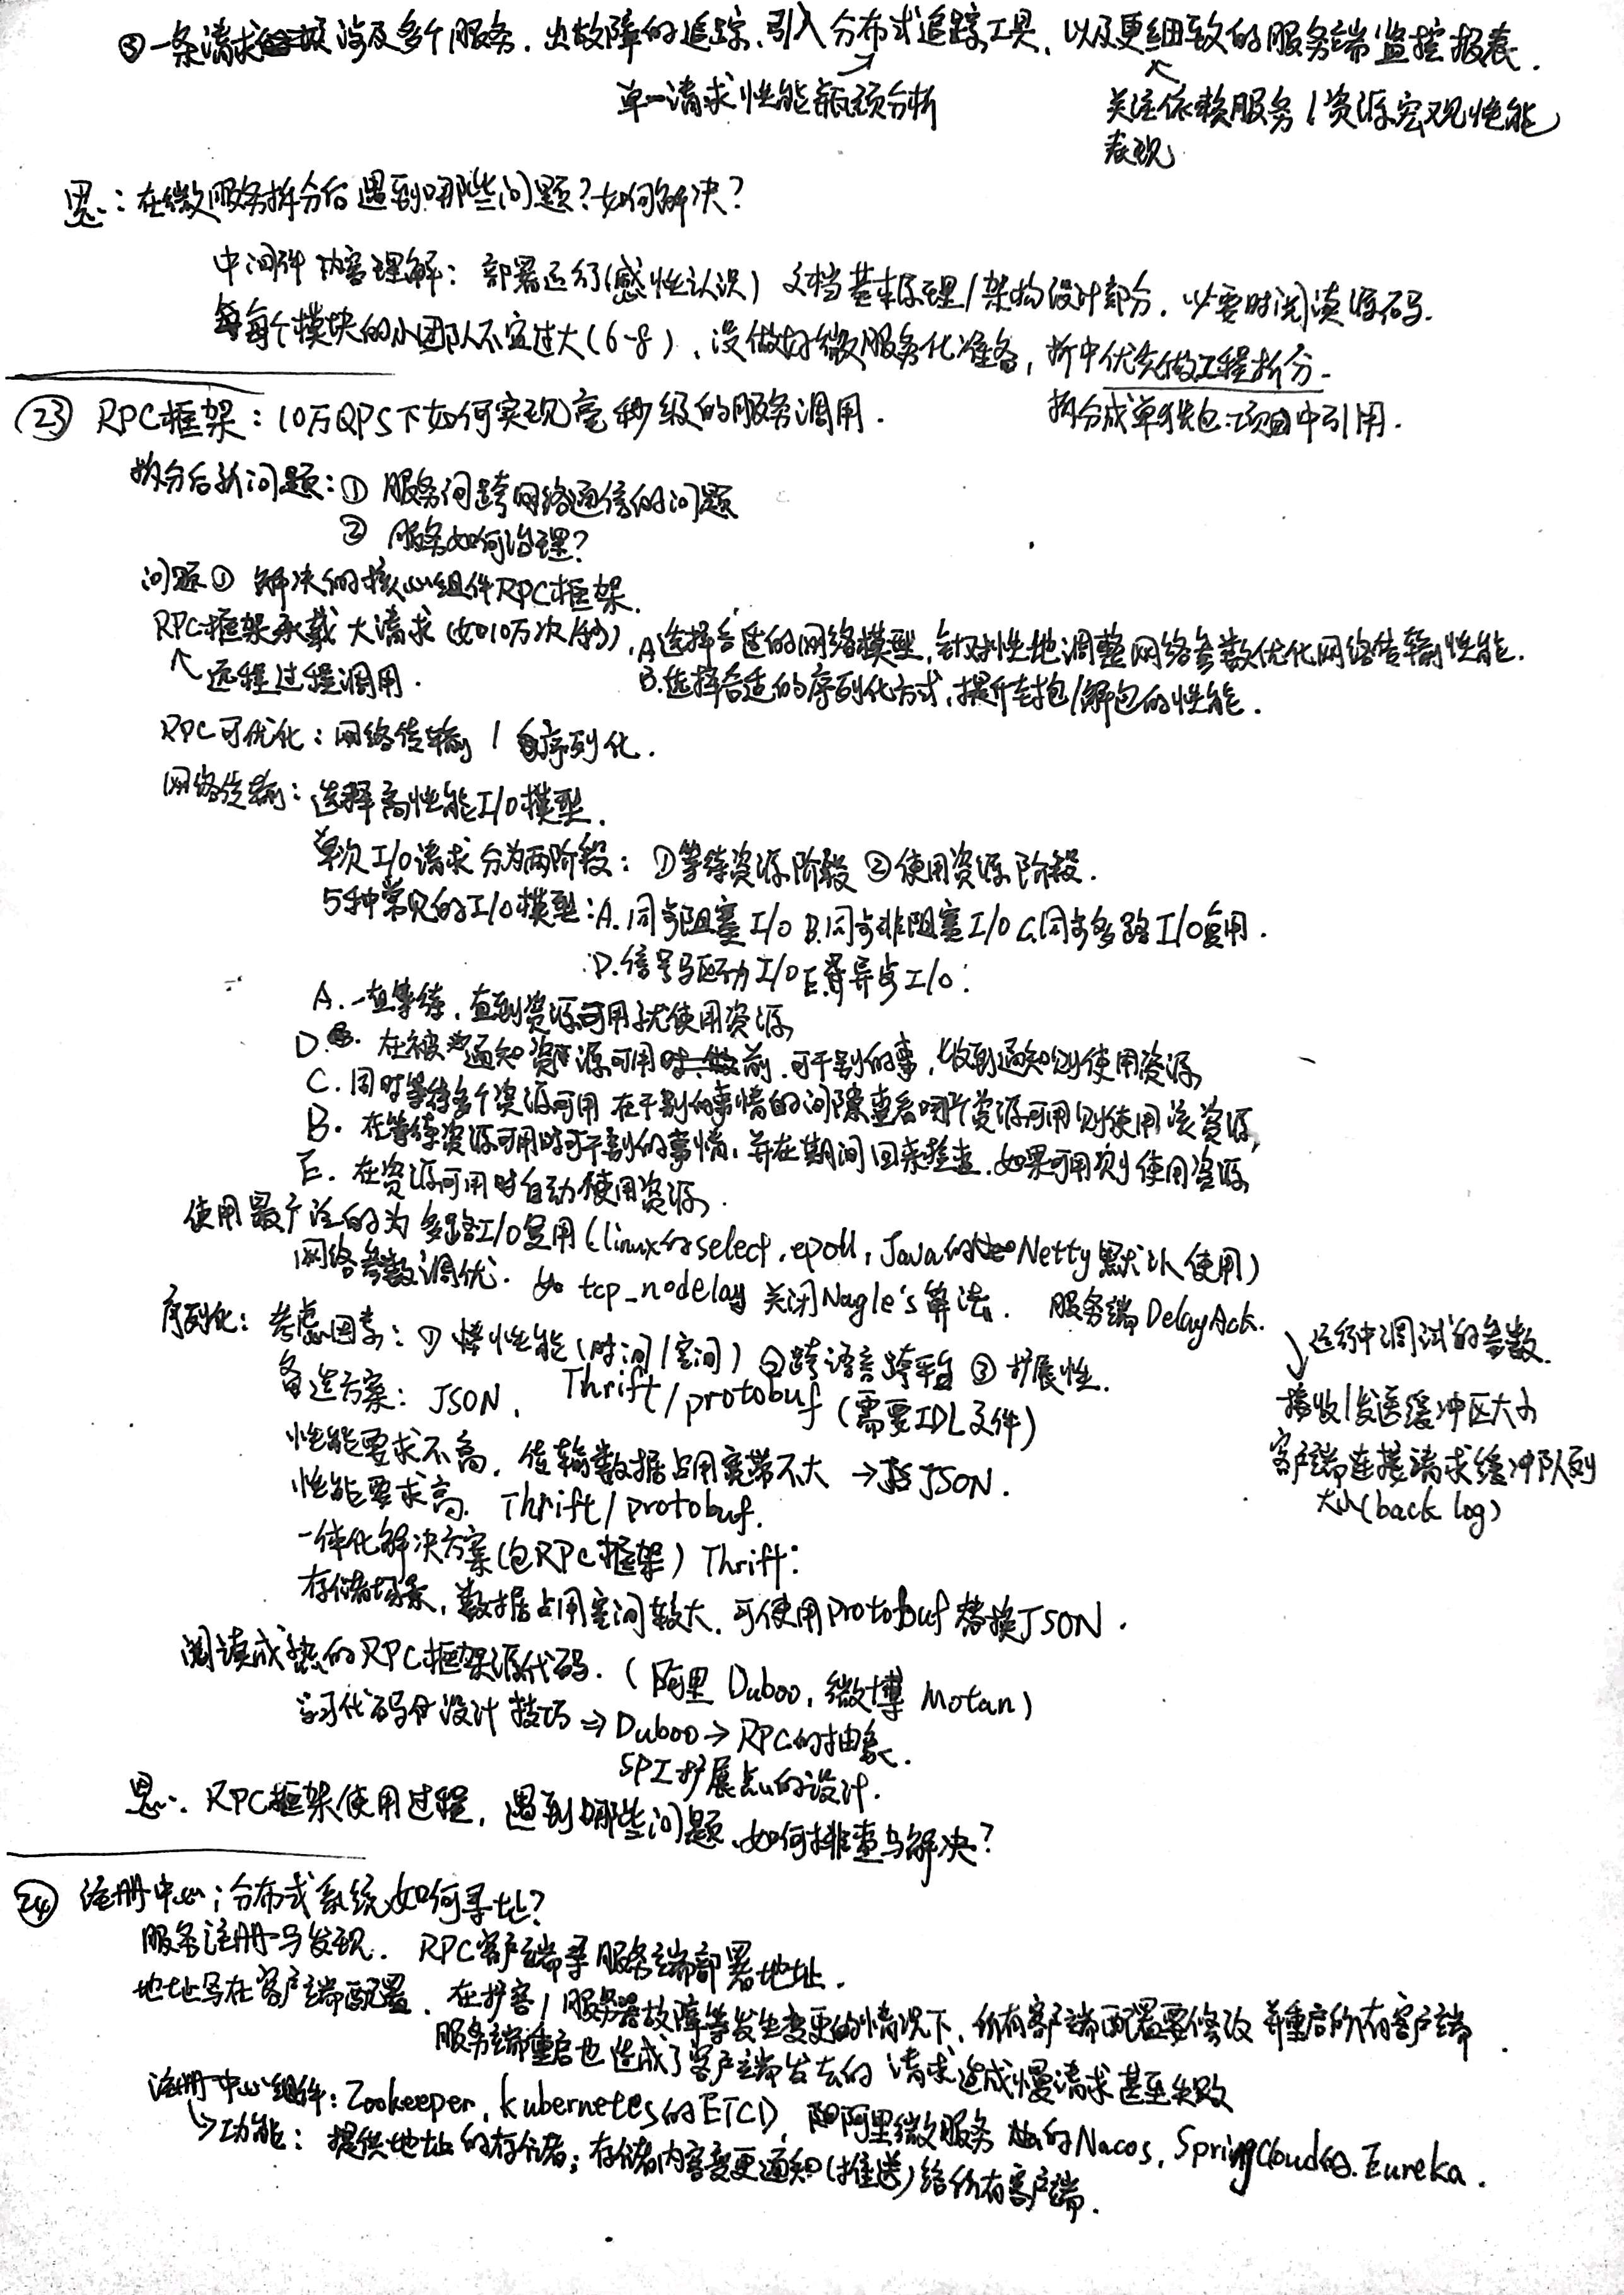 ③一条请求涉及多个服务，出故障的追踪，引入分布式追踪工具，以及更细致的服务端监控报表．
单一请求性能瓶颈分析
关注依赖服务/资源宏观性能
表现
思：在微服务拆分后遇到哪些问题？如何解决？
中间件内容理解：部署运行（感性认识）文档基本原理/架构设计部分．必要时阅读源码．
每个模块的小团队不宜过大（6-8），没做好微服务化准备，折中优先做工程拆分．
拆分成单独包项目中引用．
㉓ RPC框架：10万QPS下如何实现毫秒级的服务调用．
拆分后新问题：① 服务间跨网络通信的问题
② 服务如何治理？
问题① 解决的核心组件RPC框架．
RPC框架承载大请求（如10万次/秒），A选择合适的网络模型，针对性地调整网络参数优化网络传输性能．
↖远程过程调用．
B.选择合适的序列化方式，提升封包/解包的性能．
RPC可优化：网络传输/序列化．
网络传输：选择高性能I/O模型．
单次I/O请求分为两阶段：①等待资源阶段 ②使用资源阶段．
5种常见的I/O模型：A.同步阻塞I/O B.同步非阻塞I/O C.同步多路I/O复用．
D.信号驱动I/O E.异步I/O．
A．一直等待，直到资源可用就使用资源
D．在被通知资源可用前，可干别的事，收到通知则使用资源
C．同时等待多个资源可用 在干别的事情的间隙查看哪个资源可用则使用该资源
B．在等待资源可用时可干别的事情，并在期间回来检查，如果可用则使用资源
E．在资源可用时自动使用资源．
使用最广泛的为多路I/O复用（linux的select，epoll，Java的Netty默认使用）
网络参数调优．如tcp_nodelay关闭Nagle's算法．服务端DelayAck．
↘运行中调试的参数．
接收/发送缓冲区大小
客户端连接请求缓冲队列
大小（back log）
序列化：考虑因素：①性能（时间/空间）②跨语言跨平台 ③扩展性．
备选方案：JSON，Thrift/protobuf（需要IDL文件）
性能要求不高，传输数据占用宽带不大 →JSON．
性能要求高．Thrift/protobuf．
一体化解决方案（包RPC框架）Thrift：
存储场景，数据占用空间较大，可使用Protobuf替换JSON．
阅读成熟的RPC框架源代码．（阿里 Duboo，微博 Motan）
学习代码中设计技巧⇒Duboo→RPC的抽象．
SPI扩展点的设计．
思：RPC框架使用过程，遇到哪些问题，如何排查与解决？
㉔ 注册中心：分布式系统如何寻址？
服务注册与发现．RPC客户端寻服务端部署地址．
地址写在客户端配置．在扩容/服务器故障等发生变更的情况下，所有客户端配置要修改并重启所有客户端．
服务端重启也造成了客户端发去的请求造成慢请求甚至失败
注册中心组件：Zookeeper，kubernetes的ETCD，阿里微服务的Nacos，SpringCloud的Eureka．
↘功能：提供地址的存储；存储内容变更通知（推送）给所有客户端．